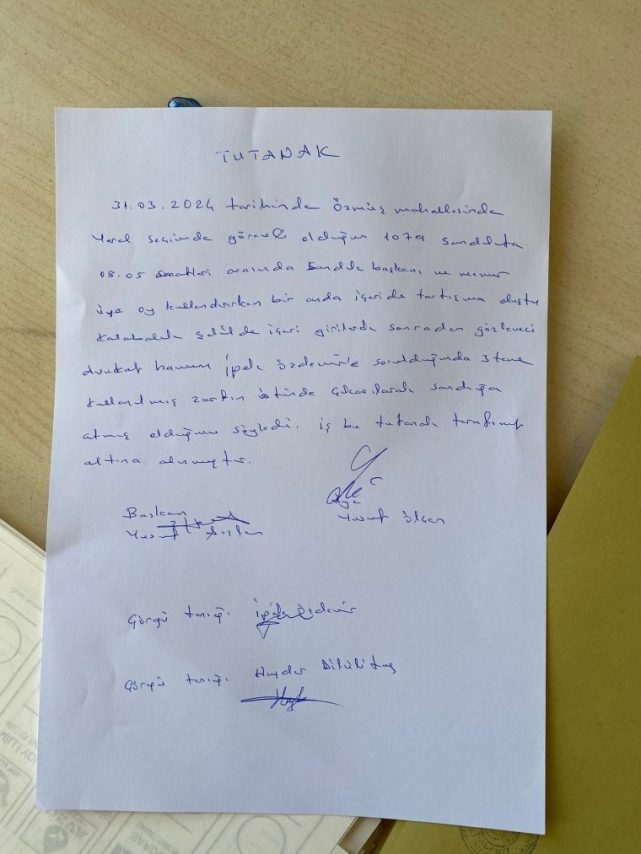 TUTANAK
31.03.2024 tarihinde mahallesinde
Yerel seçimde görevli olduğum 1079 sandıkta
08.05 saatleri arasında Sandık başkanı ve memur
üye oy kullandırırken bir anda içeride tartışma oluştu
Kalabalık şekilde içeri girilerek sonradan gözlemci
avukat hanım İpek Özdemir'e sorulduğunda 3 tane
kullanılmış zarfın üstünde sandığa
atmış olduğunu söyledi. iş bu tutanak
altına alınmıştır.
Başkan
Yusuf Arslan
Üye
Yusuf
Görgü tanığı: İpek Özdemir
Görgü tanığı: Haydar